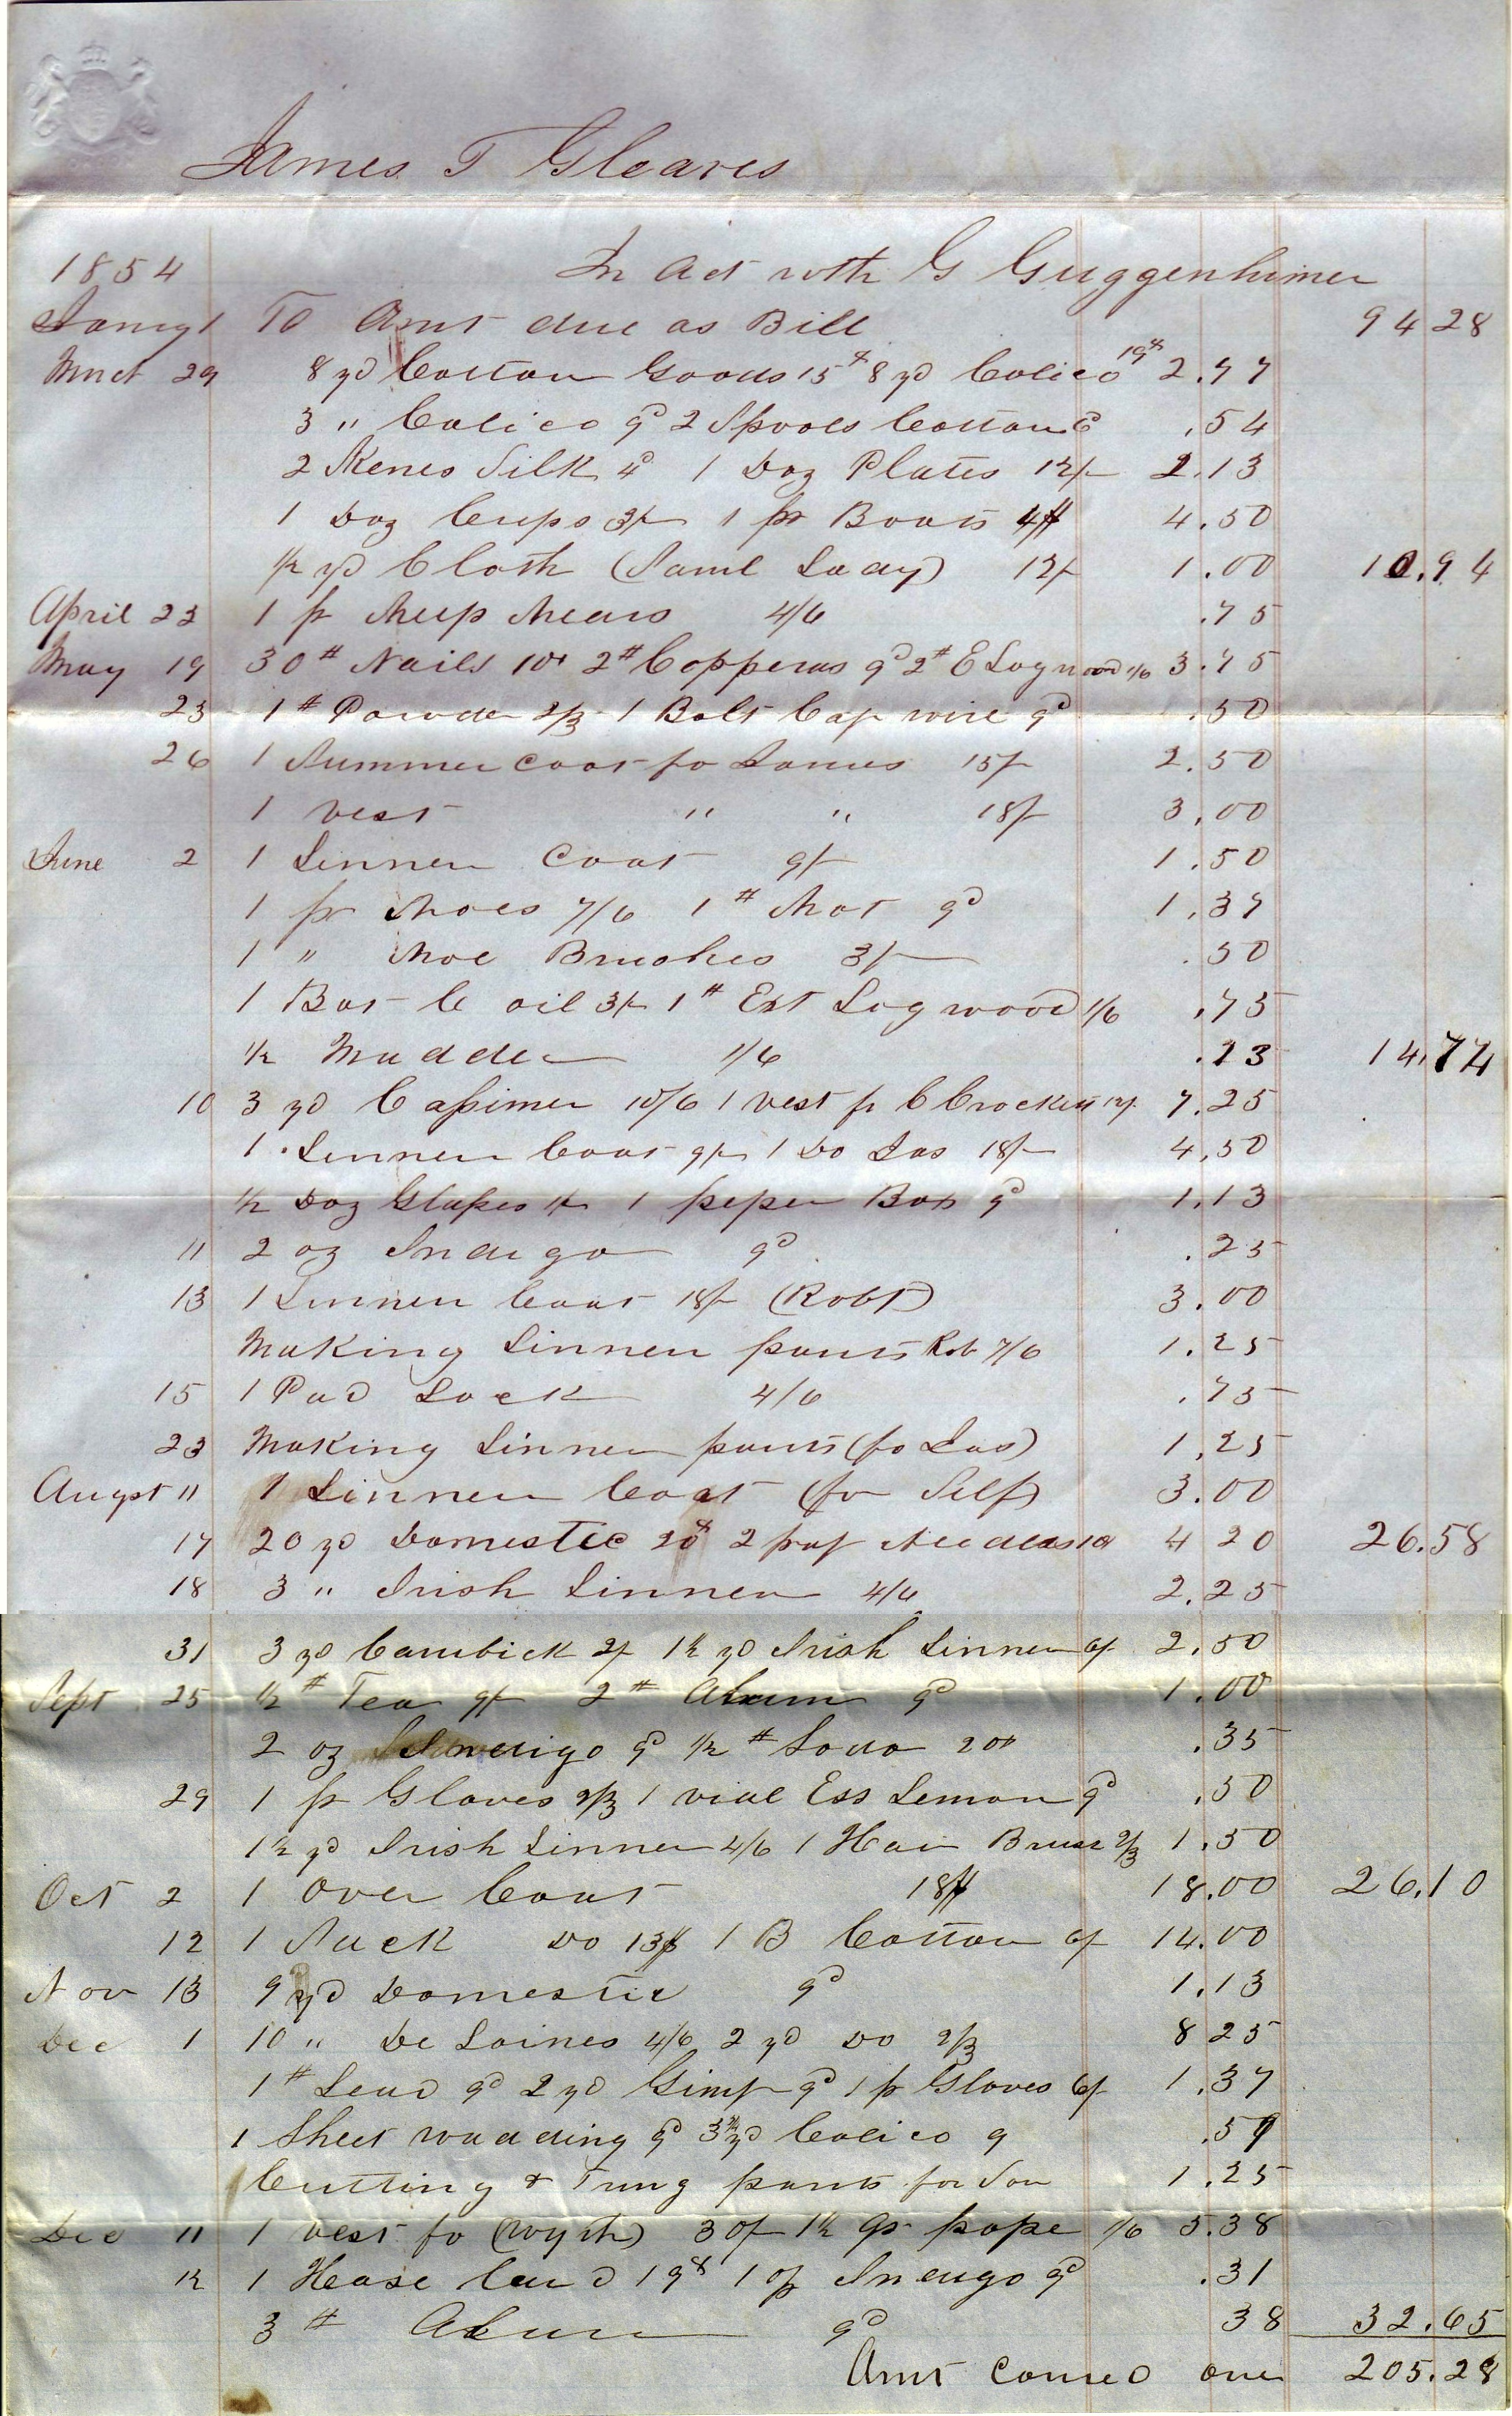 James T Gleaves
1854 In Act with G Guggenhimer
Jany 1 To Amt due as Bill 94 28
March 29 8 yd Cotton Goods 15¢ 8 yd Calico 19¢ 2.77
3 " Calico 9d 2 Spools Cotton 6d .54
2 Skenes Silk 4d 1 Doz Plates 12/- 2.13
1 Doz Cups 3/- 1 pr Boots 4$ 4.50
1/2 yd Cloth (Saml Lady) 12/- 1.00 10.94
April 23 1 pr Sheep Shears 4/6 .75
May 19 30# Nails 10¢ 2# Copperas 9d 2# E Logwood 1/6 3.75
23 1# Powder 2/3 1 Bolt Cap wire 9d .50
26 1 Summer Coat fo James 15/- 2.50
1 vest " " 18/- 3.00
June 2 1 Linnen Coat 9/- 1.50
1 pr Shoes 7/6 1# Shot 9d 1.37
1 " Shoe Brushes 3/- .50
1 Bot C oil 3/- 1# Ext Logwood 1/6 .75
1/2 Madder 1/6 .13 14.74
10 3 yd Cassimer 10/6 1 vest fr C Crockett 12/- 7.25
1 Linnen Coat 9/- 1 Do Jas 18/- 4.50
1/2 Doz Glasses 1 peper Box 9d 1.13
11 2 oz Indigo 9d .25
13 1 Linnen Coat 18/- (Robt) 3.00
Making Linnen pants Rob 7/6 1.25
15 1 Pad Lock 4/6 .75
23 Making Linnen pants (fo Jas) 1.25
Augst 11 1 Linnen Coat (for Self) 3.00
17 20 yd Domestic 20¢ 2 pap Needles 10 4 20 26.58
18 3 " Irish Linnen 4/6 2.25
31 3 yd Cambick 2/- 1 1/2 yd Irish Linnen 6/- 2.50
Sept 25 1/2# Tea 9/- 2# Alum 9d 1.00
2 oz Indigo 9d 1/2# Soda 20¢ .35
29 1 pr Gloves 2/3 1 vial Ess Lemon 9d .50
1 1/2 yd Irish Linnen 4/6 1 Hair Brush 2/3 1.50
Oct 2 1 Over Coat 18$ 18.00 26.10
12 1 Sack Do 13$ 1 B Cotton 6/- 14.00
Nov 13 9 yd Domestic 9d 1.13
Dec 1 10 " De Laines 4/6 2 yd Do 2/3 8 25
1# Lead 9d 2 yd Gimp 9d 1 pr Gloves 6/- 1.37
1 Sheet wadding 9d 3 1/2 yd Calico 9 .57
Cutting & Trimg pants for Son 1.25
Dec 11 1 vest fo (Wyth) 30/- 1 1/2 qr pape 1/6 5.38
12 1 19¢ 1 oz Indigo 9d .31
3# Alum 9d 38 32.65
Amt Carried over 205.28